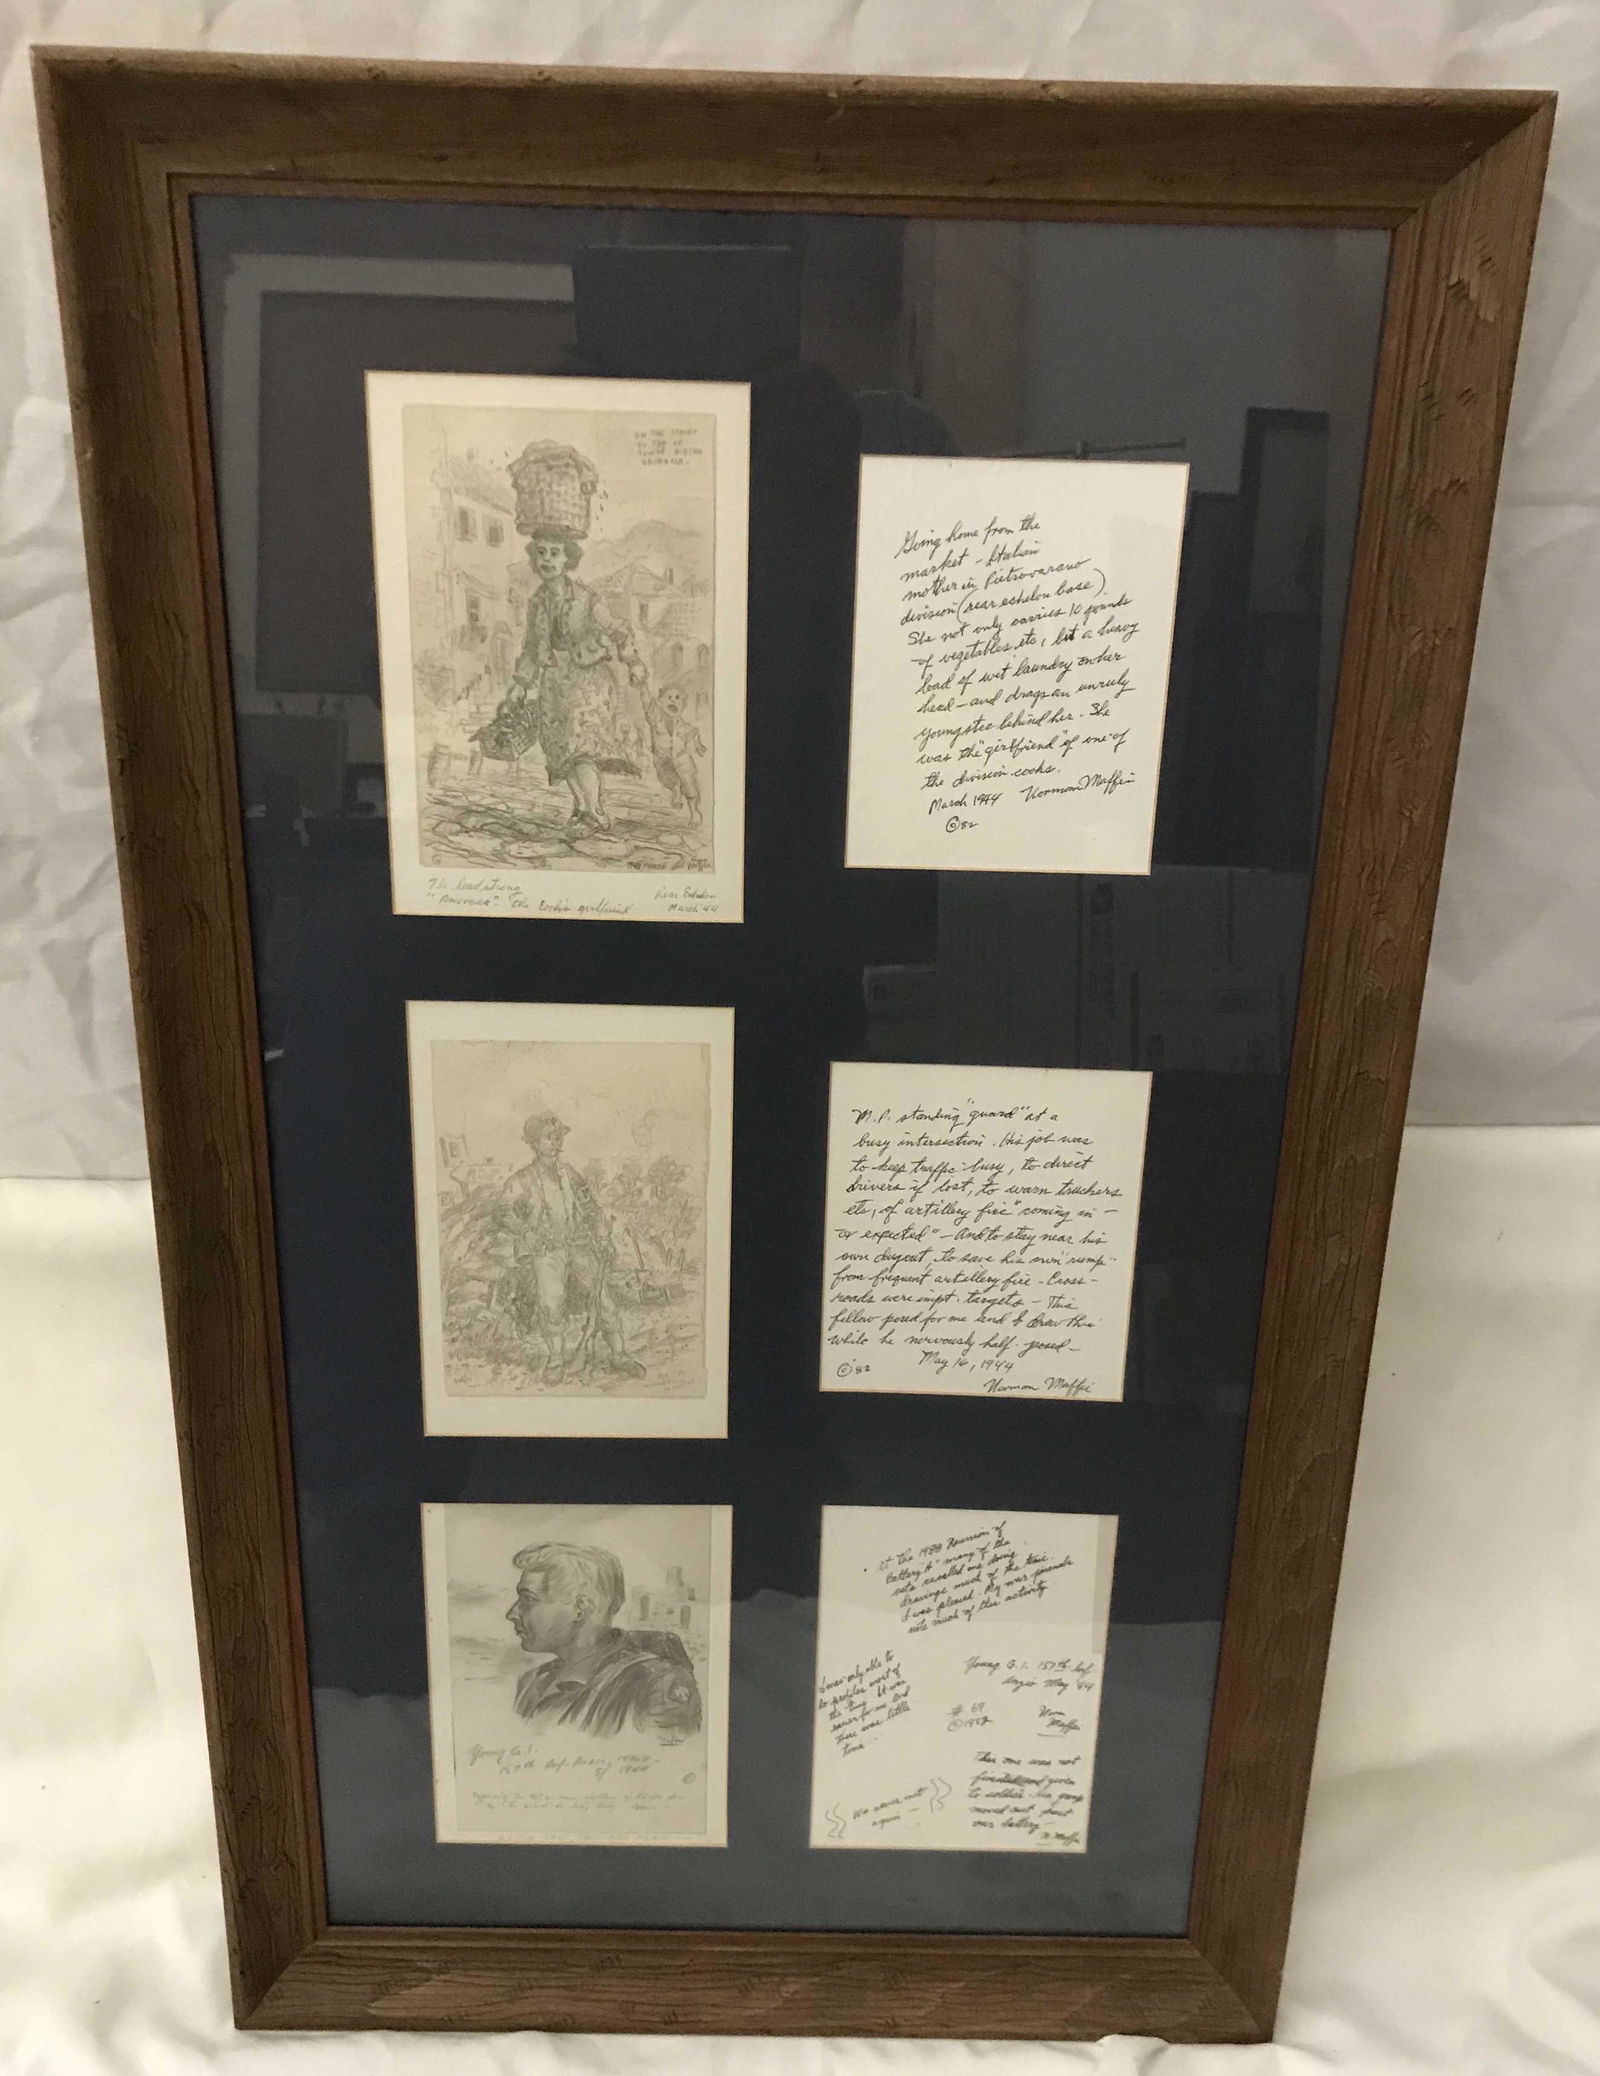 Going home from the
market - Italian
mother in Pietrovarano
division (rear echelon base).
She not only carries 10 pounds
of vegetables etc, but a heavy
load of wet laundry on her
head - and drags an unruly
youngster behind her. She
was the "girlfriend" of one of
the division cooks.
March 1944 Norman Maffei
©82
The headstrong
the Cook's girlfriend
Rear Echelon
March '44
M.P. standing "guard" at a
busy intersection. His job was
to keep traffic busy, to direct
drivers if lost, to warn truckers
etc, of artillery fire "coming in -
or expected" - And to stay near his
own dugout, to save his own "rump"
from frequent artillery fire - Cross -
roads were impt. targets - This
fellow posed for me and I drew this
while he nervously half-posed -
May 16, 1944
©'82
Norman Maffei
Young G.I.
157th Inf.
5/ 1944
©
At the 1988 Reunion of
Battery "A" many of the
vets recalled me doing
drawings much of the time.
I was pleased. My war journals
note much of this activity.
I was only able to
do profiles most of
the time. It was
easier for me and
there was little
time ...
Young G.I. 157th Inf
Anzio May '44
# 69
©1982
Norm
Maffei
This one was not
finished and given
to soldier. His group
moved out past
our battery -
N Maffei
We never met
again -